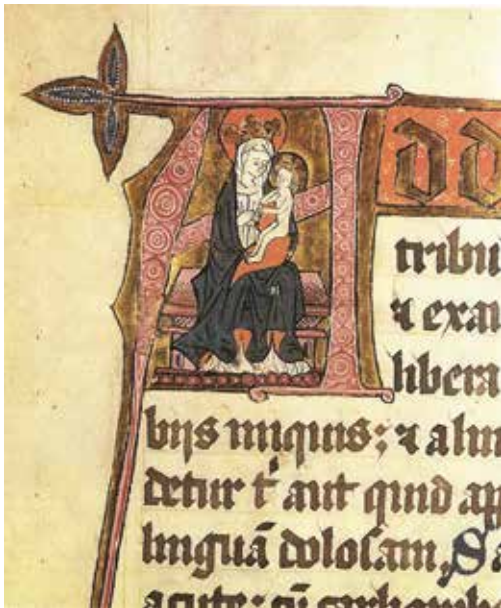 Add
tribu
⁊ exau
libera
bijs iniquis: ⁊ a lin
detur t̓ aut quid app
linguā dolosam, Sa
acute: cū carbonib